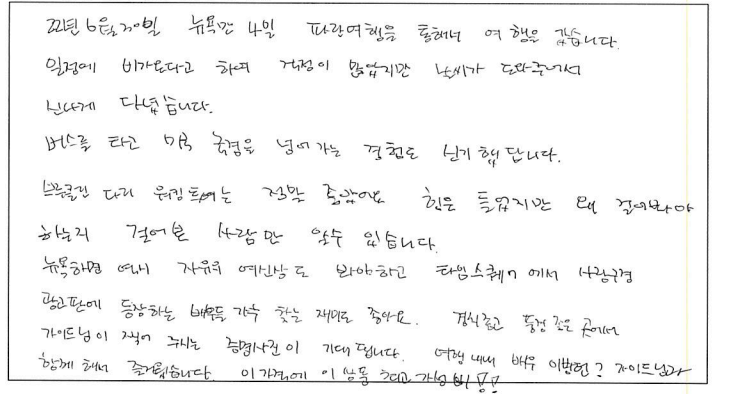 22년 6월20일 뉴욕만 4일 파란여행을 통해서 여행을 갔습니다.
일정에 비가온다고 하여 걱정이 많았지만 날씨가 도와주어서
신나게 다녔습니다.
버스를 타고 미국 국경을 넘어가는 경험도 신기했답니다.
브루클린 다리 워킹투어는 정말 좋았어요 힘은 들었지만 왜 걸어봐야
하는지 걸어본 사람만 알수 있습니다.
뉴욕하면 역시 자유의 여신상도 봐야하고 타임스퀘어에서 사람구경
광고판에 등장하는 배우들 가수 찾는 재미도 좋아요. 경치좋고 풍경 좋은 곳에서
가이드님이 찍어 주시는 증명사진이 기대 됩니다. 여행내내 배우 이병헌? 가이드님과
함께 해서 즐거웠습니다. 이가격에 이 상품 최고 가성비!!